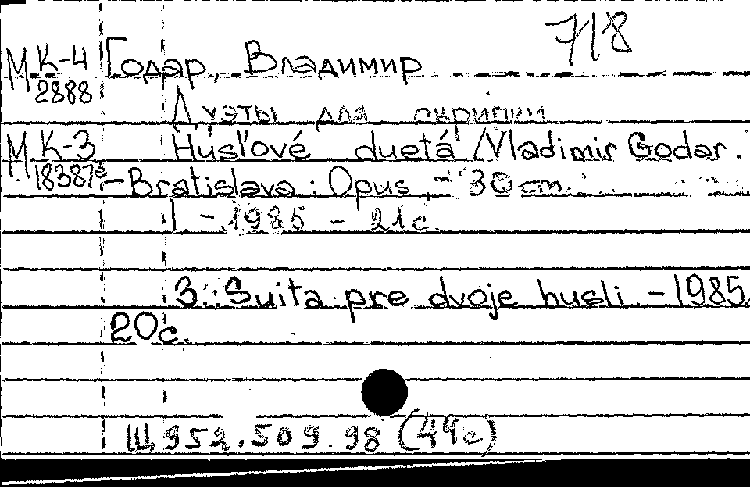 718
М К-4 Годар, Владимир
2888
Дуэты для скрипки
М К-3 Husľové duetá / Vladimir Godar.
18387 – Bratislava : Opus, – 30 cm.
1 – 1985 – 21 с.
3. : Suita pre dvoje husli – 1985.
20с.
Ш 952.509.98 (44с)